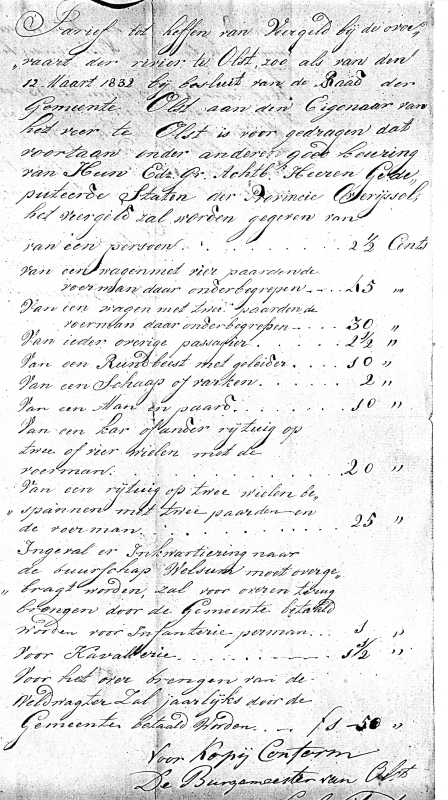 Tarief tot heffen van Veergeld bij de over„
„vaart der rivier te Olst, zoo als van den
12 Maart 1832 bij besluit van de Raad der
Gemeente Olst aan den Eigenaar van
het veer te Olst is voor gedragen dat
voortaan onder anderen goed keuring
van Hun Edz. Gr. Achtb. Heeren Gede„
puteerde Staten der Provincie Overijssel,
het veergeld zal worden gegeven van
van een persoon . . . . 2 1/2 Cents
Van een wagen met vier paarden de
voerman daar onderbegrepen - - - 45 „
Van een wagen met twee paarden de
voerman daar onderbegrepen - - - 30 „
Van ieder overige passagier . . . 2 1/2 „
Van een Rundbeest met geleider . . . 10 „
Van een Schaap of varken . . . . 2 „
Van een Man en paard . . . . 10 „
Van een kar of ander rijtuig op
twee of vier wielen met de
voerman . . . . 20 „
Van een rijtuig op twee wielen be„
„spannen met twee paarden en
de voerman . . . . 25 „
Ingeval er Inkwartiering naar
de buurschap Welsum moet overge„
„bragt worden, zal voor over en terug
brengen door de Gemeente betaald
worden voor Infanterie per man . . . 1 „
Voor Kavallerie . . . - - - 1 1/2 „
Voor het over brengen van de
Veldwagter zal jaarlijks door de
Gemeente betaald worden . . . f 1 - 50 „
Voor Kopij Conform
De Burgemeester van Olst